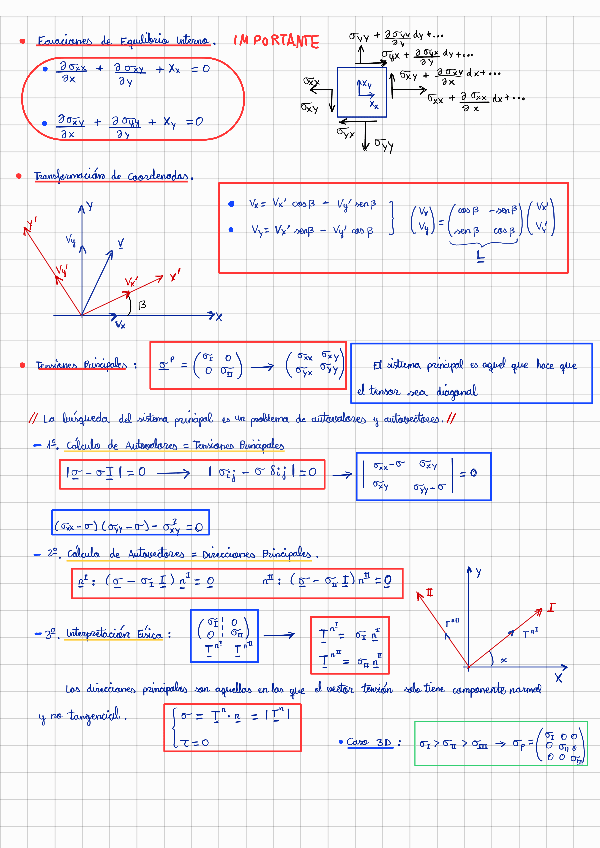 • Ecuaciones de Equilibrio Interno. IMPORTANTE
• ∂σxx/∂x + ∂σxy/∂y + Xx = 0
• ∂σxy/∂x + ∂σyy/∂y + Xy = 0
σyy + ∂σyy/∂y dy + ...
σyx + ∂σyx/∂y dy + ...
σxy + ∂σxy/∂x dx + ...
σxx + ∂σxx/∂x dx + ...
σxx
σxy
Xy
Xx
σyx
σyy
• Transformación de Coordenadas.
• Vx = Vx' cosβ - Vy' senβ
• Vy = Vx' senβ - Vy' cosβ
(Vx Vy) = (cosβ -senβ senβ cosβ) (Vx' Vy')
L
Y'
Y
Vy
V
Vy'
Vx'
X'
β
Vx
X
• Tensiones Principales : σ^P = (σI 0 0 σII) → (σxx σxy σyx σyy)
El sistema principal es aquel que hace que
el tensor sea diagonal
// La búsqueda del sistema principal es un problema de autovalores y autovectores. //
- 1º. Cálculo de Autovalores = Tensiones Principales
|σ - σI| = 0 → |σij - σ δij| = 0 → |σxx-σ σxy σxy σyy-σ| = 0
(σxx-σ)(σyy-σ) - σxy^I = 0
- 2º. Cálculo de Autovectores = Direcciones Principales.
n^I : (σ - σI I) n^I = 0 n^II : (σ - σII I) n^II = 0
- 3º. Interpretación Física : (σI 0 0 σII) → T^nI = σI n^I
T^nI T^nII T^nII = σII n^II
II
Y
I
T^nII
T^nI
α
X
Las direcciones principales son aquellas en las que el vector tensión solo tiene componente normal
y no tangencial. { σ = T^n · n = |T^n|
τ = 0
• Caso 3D : σI > σII > σIII → σP = (σI 0 0 0 σII 0 0 0 σIII)